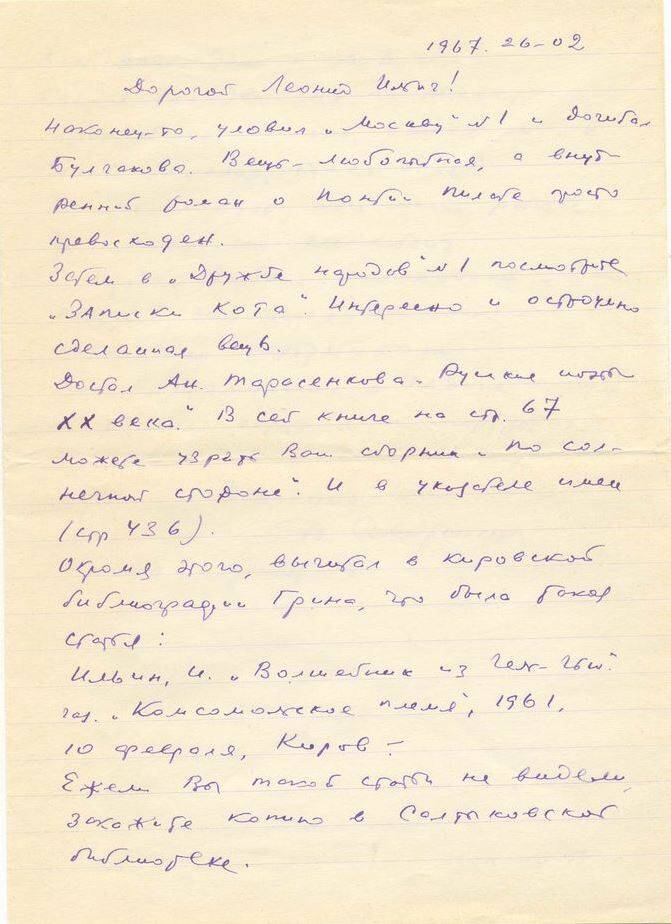 1967. 26-02
Дорогой Леонид Ильич!
Наконец-то, уловил „Москву" №1 и дочитал
Булгакова. Вещь – любопытная, а внут-
ренний роман о Понтии Пилате просто
превосходен.
Затем в „Дружбе народов" №1 посмотрите
„Записки кота". Интересно и остроумно
сделанная вещь.
Достал Ан. Тарасенкова „Русские поэты
XX века". В сей книге на стр. 67
можете узреть Ваш сборник „По сол-
нечной стороне". И в указателе имен
(стр 436).
Окромя этого, вычитал в кировской
библиографии Грина, что была такая
статья:
Ильин, И. „Волшебник из Гель-Гью".
газ. „Комсомольское племя", 1961,
10 февраля, Киров –
Ежели Вы такой статьи не видели,
закажите копию в Салтыковской
библиотеке.